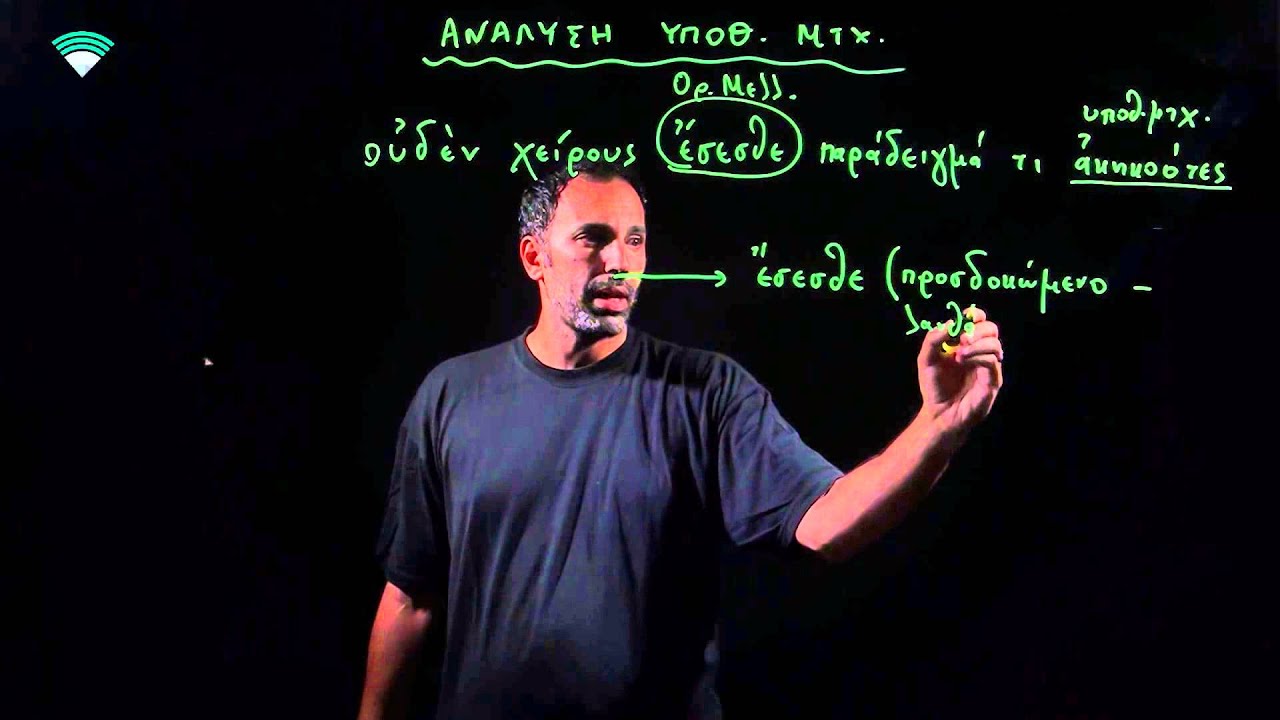 ΑΝΑΛΥΣΗ ΥΠΟΘ. ΜΤΧ.
Ορ. Μελλ.
υποθ. μτχ.
οὐδὲν χείρους ἔσεσθε παράδειγμά τι ἀκηκοότες
ἔσεσθε (προσδοκώμενο -